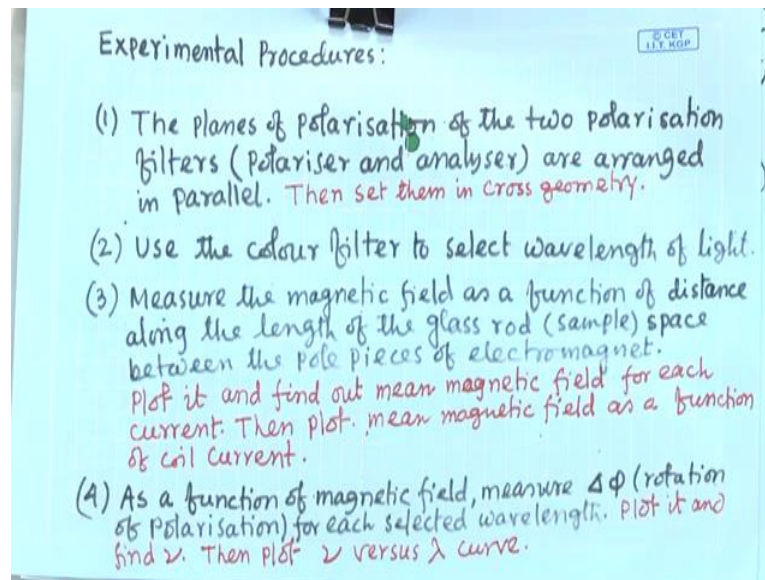 Experimental Procedures:
© CET
I.I.T. KGP
(1) The planes of polarisation of the two polarisation
filters (polariser and analyser) are arranged
in parallel. Then set them in cross geometry.
(2) Use the colour filter to select wavelength of light.
(3) Measure the magnetic field as a function of distance
along the length of the glass rod (sample) space
between the pole pieces of electromagnet.
Plot it and find out mean magnetic field for each
current. Then plot. mean magnetic field as a function
of coil current.
(4) As a function of magnetic field, measure Δφ (rotation
of polarisation) for each selected wavelength. Plot it and
find ν. Then plot ν versus λ curve.